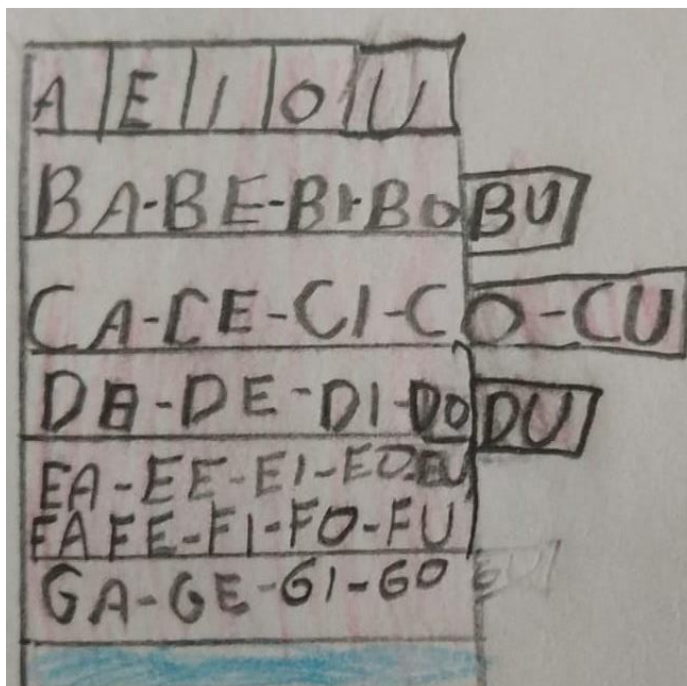 A E I O U
BA-BE-BI-BO BU
CA-CE-CI-CO-CU
DA-DE-DI-DO DU
EA-EE-EI-EO-EU
FA FE-FI-FO-FU
GA-GE-GI-GO GU